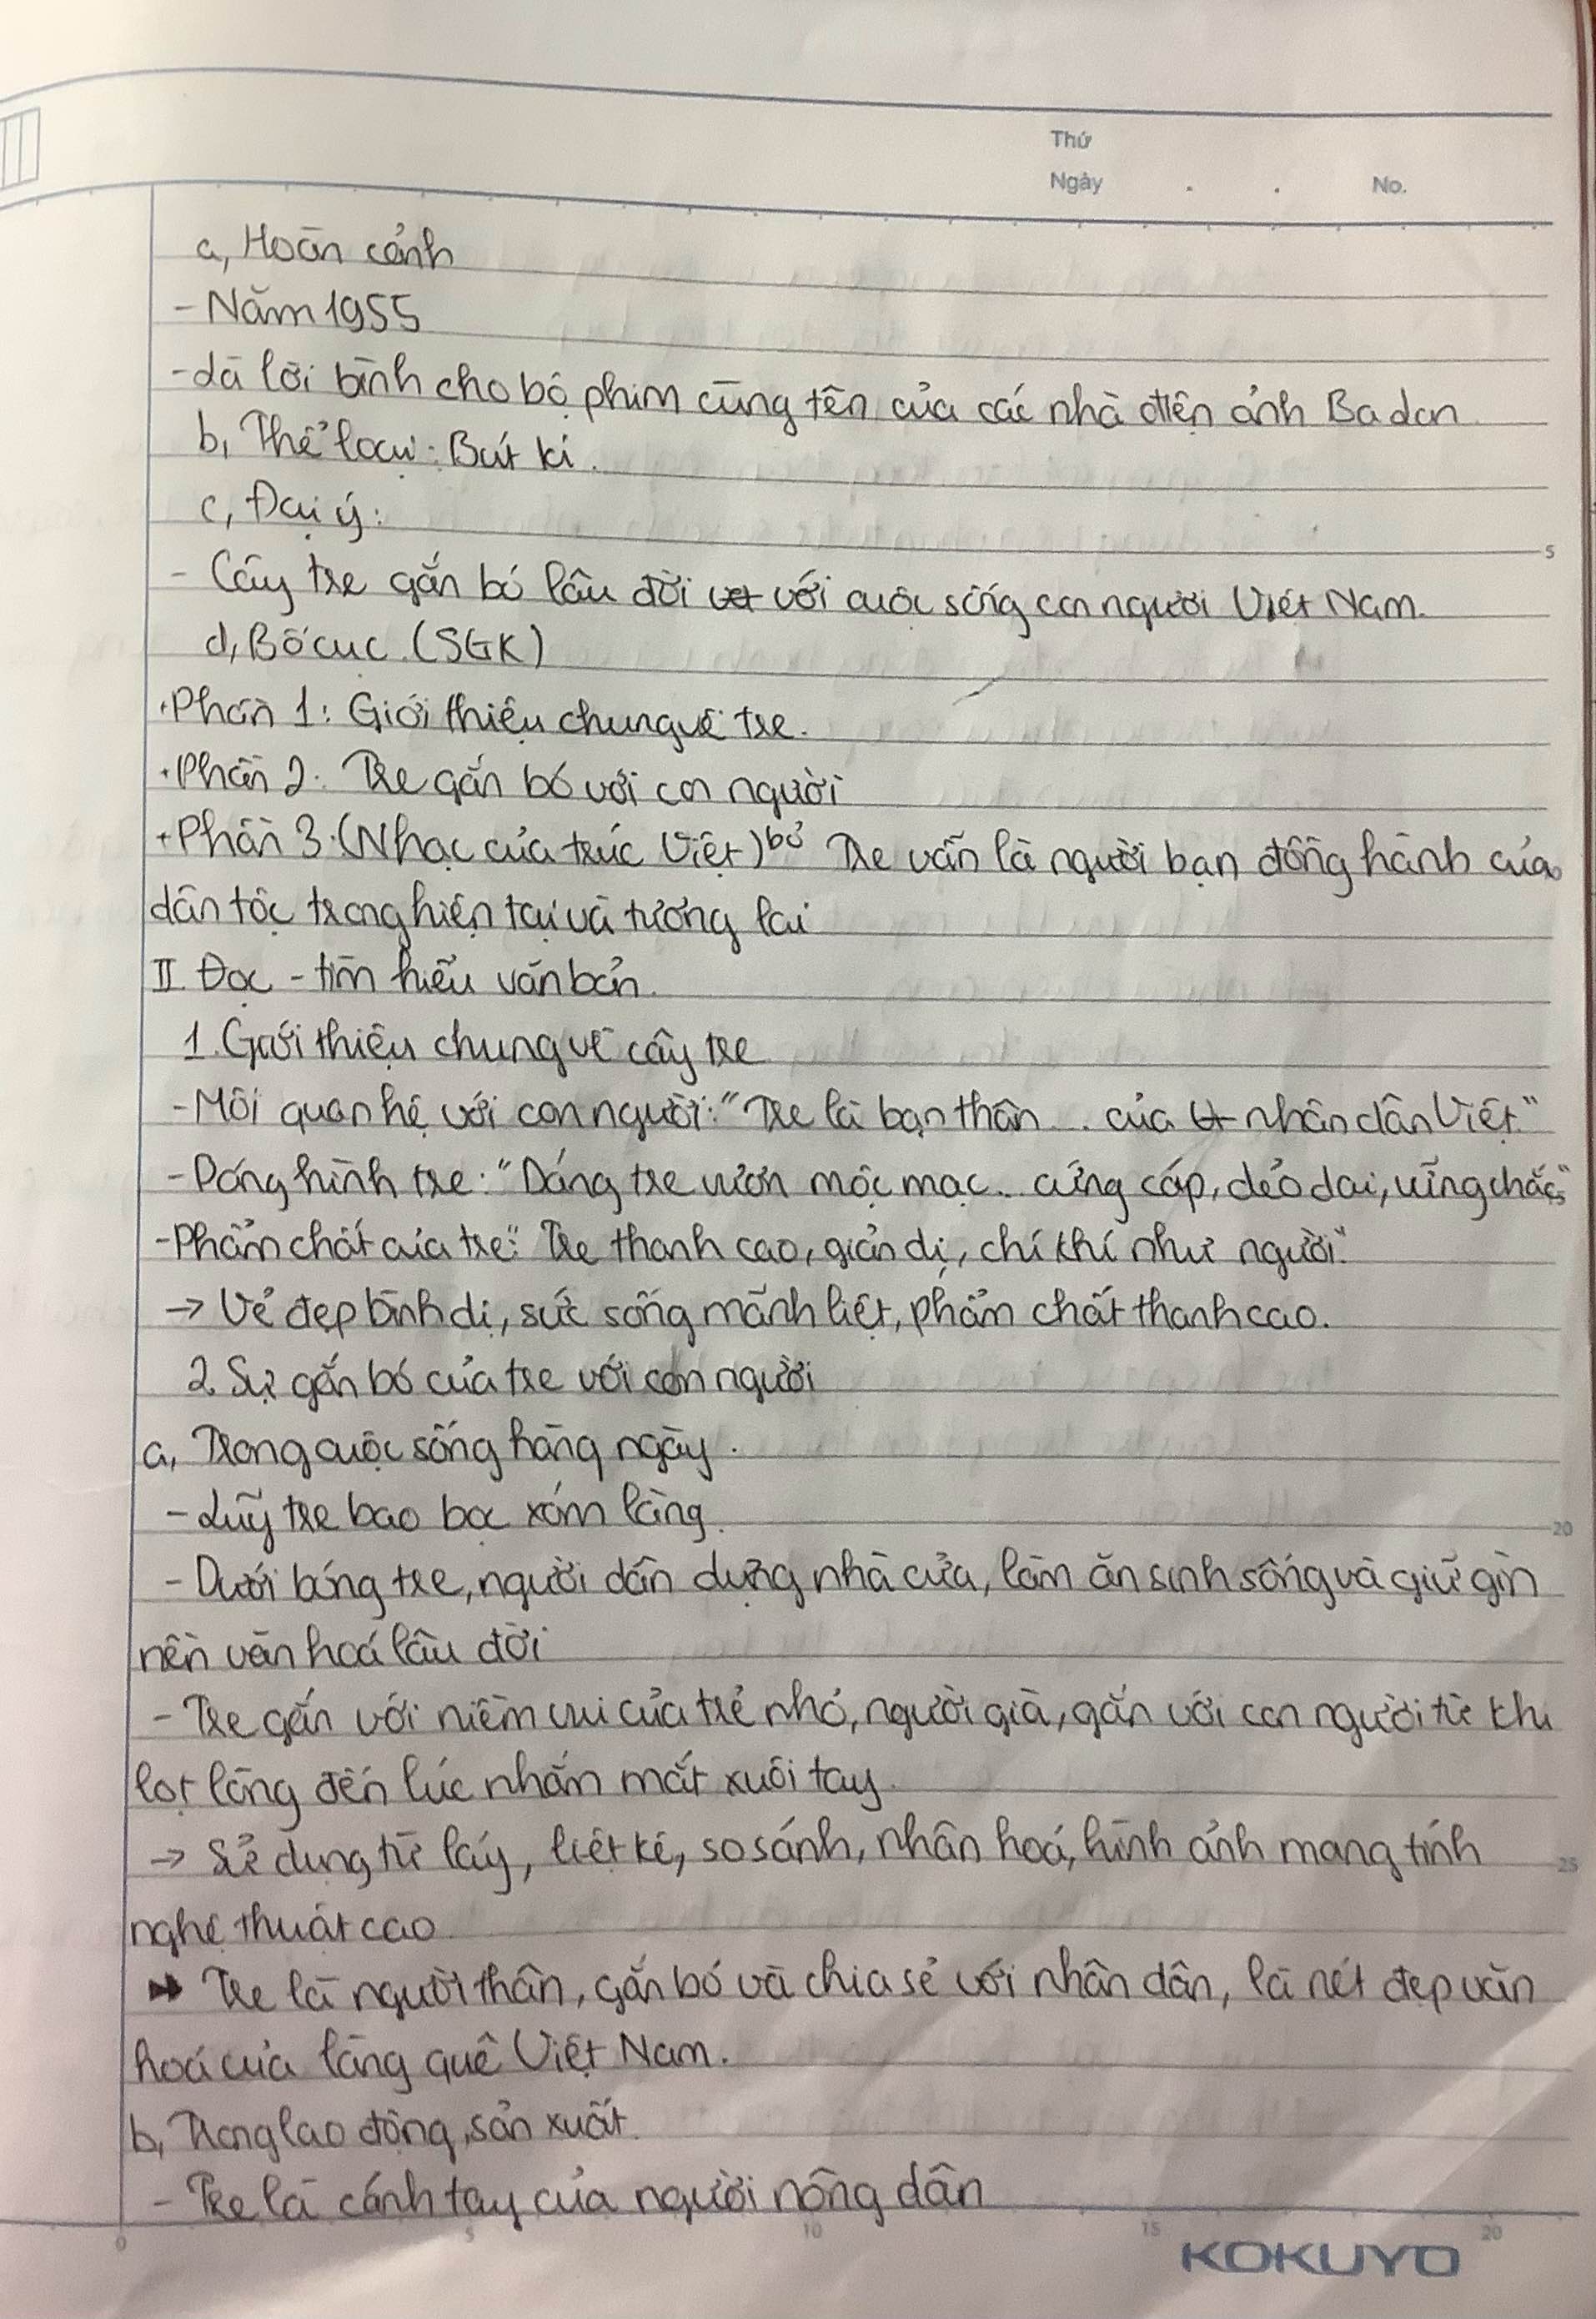 Thứ
Ngày . . No.
a, Hoàn cảnh
- Năm 1955
- Là lời bình cho bộ phim cùng tên của các nhà điện ảnh Ba Lan
b, Thể loại: Bút kí.
c, Đại ý:
- Cây tre gắn bó lâu đời với cuộc sống con người Việt Nam.
d, Bố cục (SGK)
+ Phần 1: Giới thiệu chung về tre.
+ Phần 2: Tre gắn bó với con người
+ Phần 3: (Nhạc của trúc Việt) bỏ Tre vẫn là người bạn đồng hành của
dân tộc trong hiện tại và tương lai
II. Đọc - tìm hiểu văn bản.
1. Giới thiệu chung về cây tre
- Mối quan hệ với con người: "Tre là bạn thân ... của nhân dân Việt"
- Dáng hình tre: "Dáng tre vươn mộc mạc... cứng cáp, dẻo dai, vững chắc"
- Phẩm chất của tre: "Tre thanh cao, giản dị, chí khí như người"
→ Vẻ đẹp bình dị, sức sống mãnh liệt, phẩm chất thanh cao.
2. Sự gắn bó của tre với con người
a, Trong cuộc sống hàng ngày.
- Luỹ tre bao bọc xóm làng.
- Dưới bóng tre, người dân dựng nhà cửa, làm ăn sinh sống và giữ gìn
nền văn hoá lâu đời
- Tre gắn với niềm vui của trẻ nhỏ, người già, gắn với con người từ khi
lọt lòng đến lúc nhắm mắt xuôi tay.
→ Sử dụng từ láy, liệt kê, so sánh, nhân hoá, hình ảnh mang tính
nghệ thuật cao.
→ Tre là người thân, gắn bó và chia sẻ với nhân dân, là nét đẹp văn
hoá của làng quê Việt Nam.
b, Trong lao động, sản xuất.
- Tre là cánh tay của người nông dân
5
20
25
0 5 10 15 20
KOKUYO